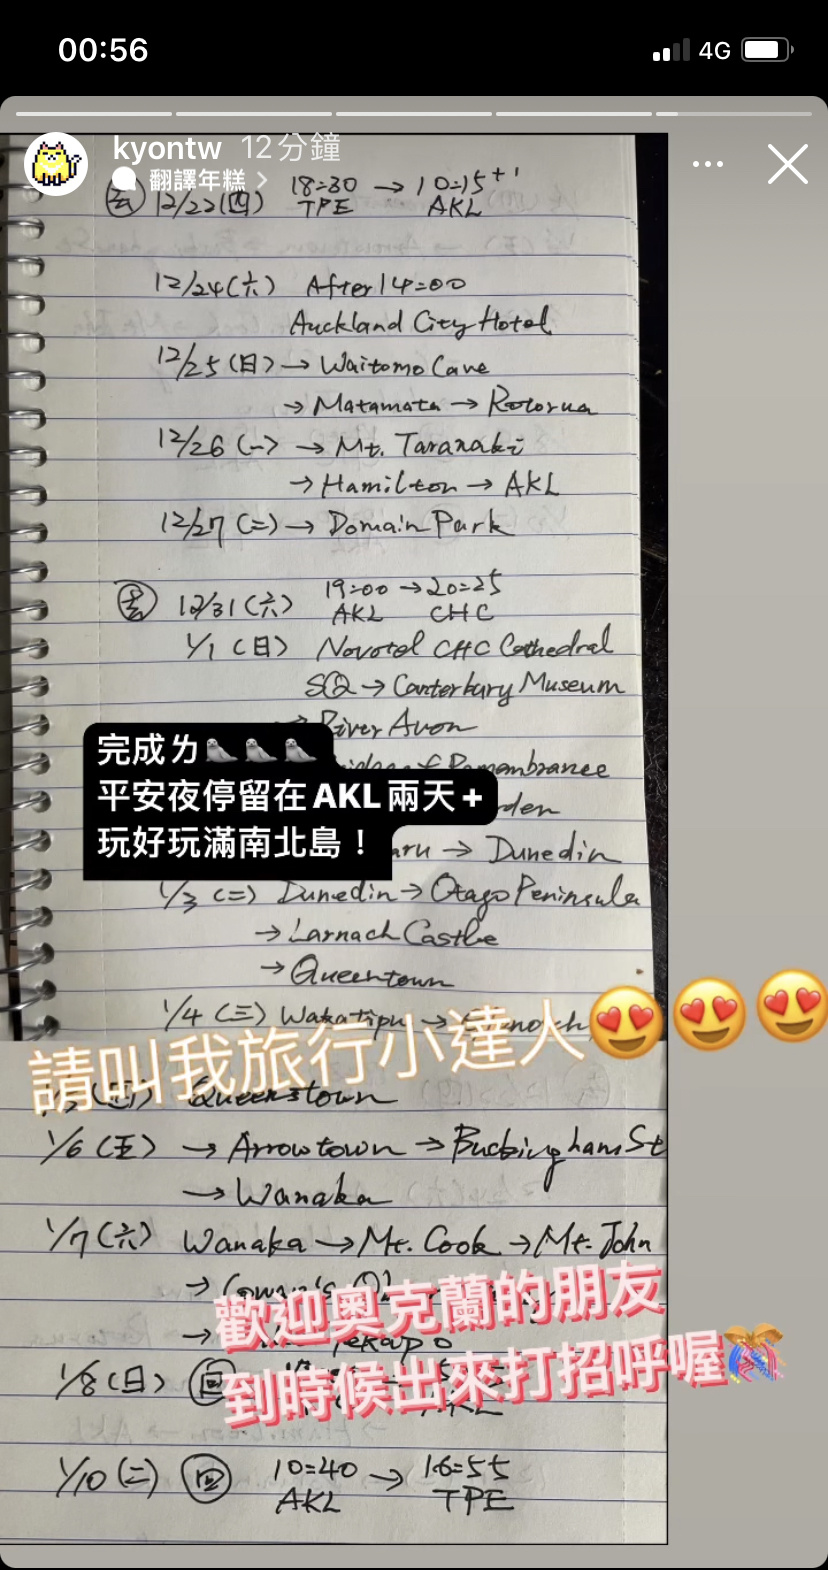 00:56
4G
kyontw 12分鐘
翻譯年糕 >
去 12/22(四) 18:30 → 10:15+1
TPE AKL
12/24(六) After 14:00
Auckland City Hotel
12/25(日) → Waitomo Cave
→ Matamata → Rotorua
12/26(一) → Mt. Taranaki
→ Hamilton → AKL
12/27(二) → Domain Park
去 12/31(六) 19:00 → 20:25
AKL CHC
1/1(日) Novotel CHC Cathedral
SQ → Canterbury Museum
River Avon
完成ㄌ
平安夜停留在AKL兩天+
玩好玩滿南北島！
→ Dunedin
1/3(二) Dunedin → Otago Peninsula
→ Larnach Castle
→ Queentown
1/4(三) Wakatipu →
請叫我旅行小達人😍😍😍
Queenstown
1/6(五) → Arrowtown → Buckingham St
→ Wanaka
1/7(六) Wanaka → Mt. Cook → Mt. John
→
歡迎奧克蘭的朋友
→
1/8(日) 回
到時候出來打招呼喔🎊
1/10(二) 回 10:40 → 16:55
AKL TPE